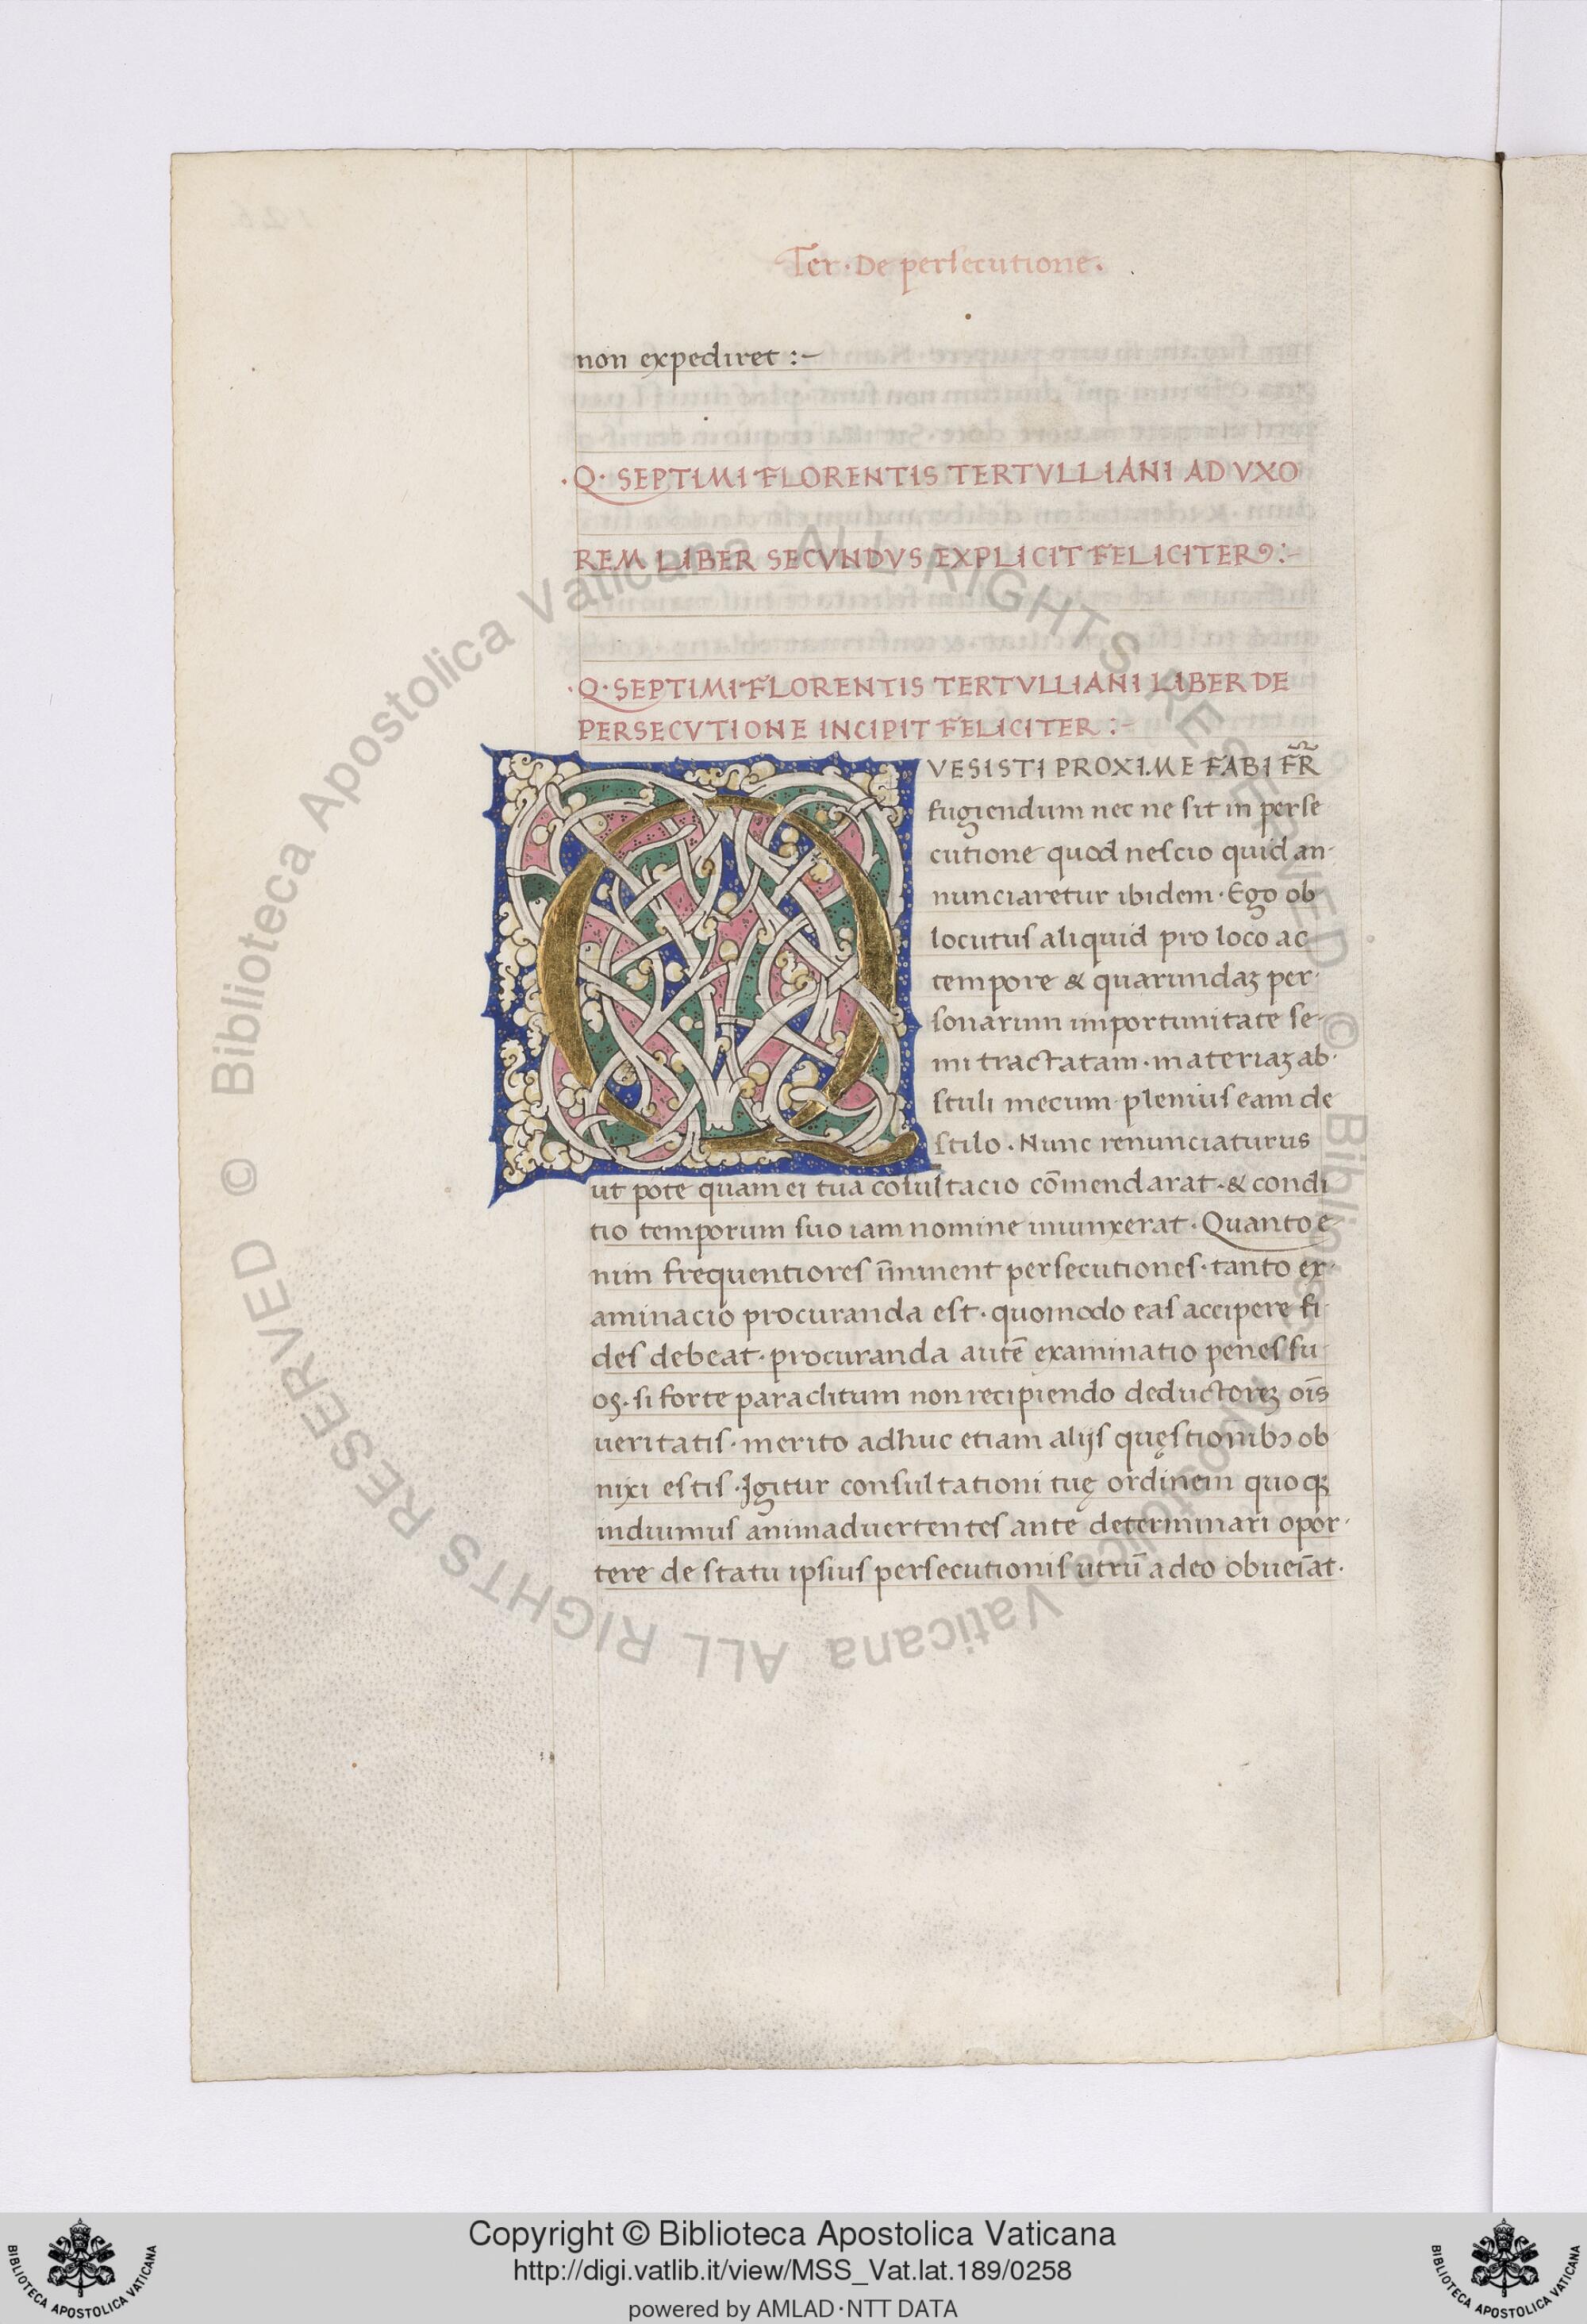 Ter · De persecutione ·
non expediret :–
· Q · SEPTIMI FLORENTIS TERTVLLIANI AD VXO
REM LIBER SECVNDVS EXPLICIT FELICITER :–
· Q · SEPTIMI FLORENTIS TERTVLLIANI LIBER DE
PERSECVTIONE INCIPIT FELICITER :–
QVESISTI PROXIME FABI FR̃
fugiendum nec ne sit in perse
cutione quod nescio quid an-
nunciaretur ibidem · Ego ob
locutus aliquid pro loco ac
tempore & quarundaꝫ per-
sonarum importunitate se-
mi tractatam · materiaꝫ ab-
stuli mecum plenius eam de
stilo · Nunc renunciaturus
ut pote quam ei tua cõsultacio cõmendarat · & condi
tio temporum suo iam nomine iniunxerat · Quanto e
nim frequentiores ĩminent persecutiones · tanto ex-
aminacio procuranda est · quomodo eas accipere fi-
des debeat · procuranda autẽ examinatio penes su-
oꝫ · si forte paraclitum non recipiendo deductoreꝫ oĩs
ueritatis · merito adhuc etiam alijs quęstionibꝫ ob
nixi estis · Igitur consultationi tuę ordinem quoqꝫ
induimus animaduertentes ante determinari opor-
tere de statu ipsius persecutionis utrũ a deo obueĩat ·
© Biblioteca Apostolica Vaticana ALL RIGHTS RESERVED
© Biblioteca Apostolica Vaticana ALL RIGHTS RESERVED
Copyright © Biblioteca Apostolica Vaticana
http://digi.vatlib.it/view/MSS_Vat.lat.189/0258
powered by AMLAD·NTT DATA
BIBLIOTECA APOSTOLICA VATICANA
BIBLIOTECA APOSTOLICA VATICANA